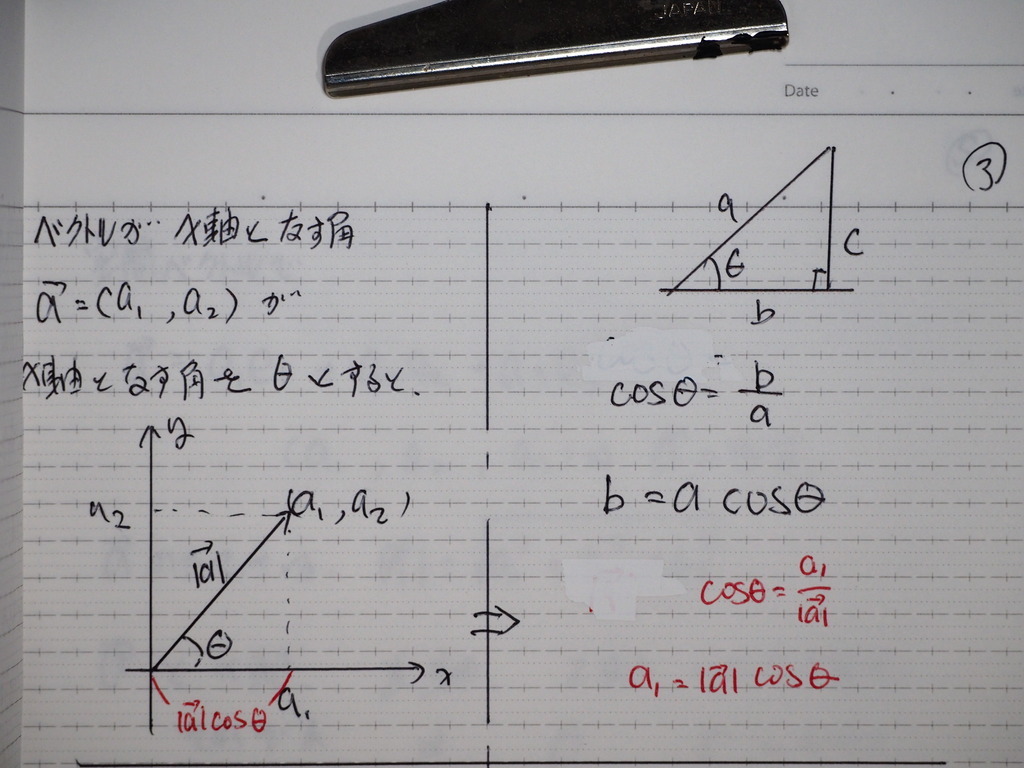 JAPAN
Date
③
ベクトルが x軸となす角
a⃗ = (a₁ , a₂) が
x軸となす角を θ とすると、
y
a₂
(a₁ , a₂)
|a⃗|
θ
x
|a⃗| cosθ
a₁
a
θ
c
b
cosθ = b/a
b = a cosθ
⇒
cosθ = a₁/|a⃗|
a₁ = |a⃗| cosθ